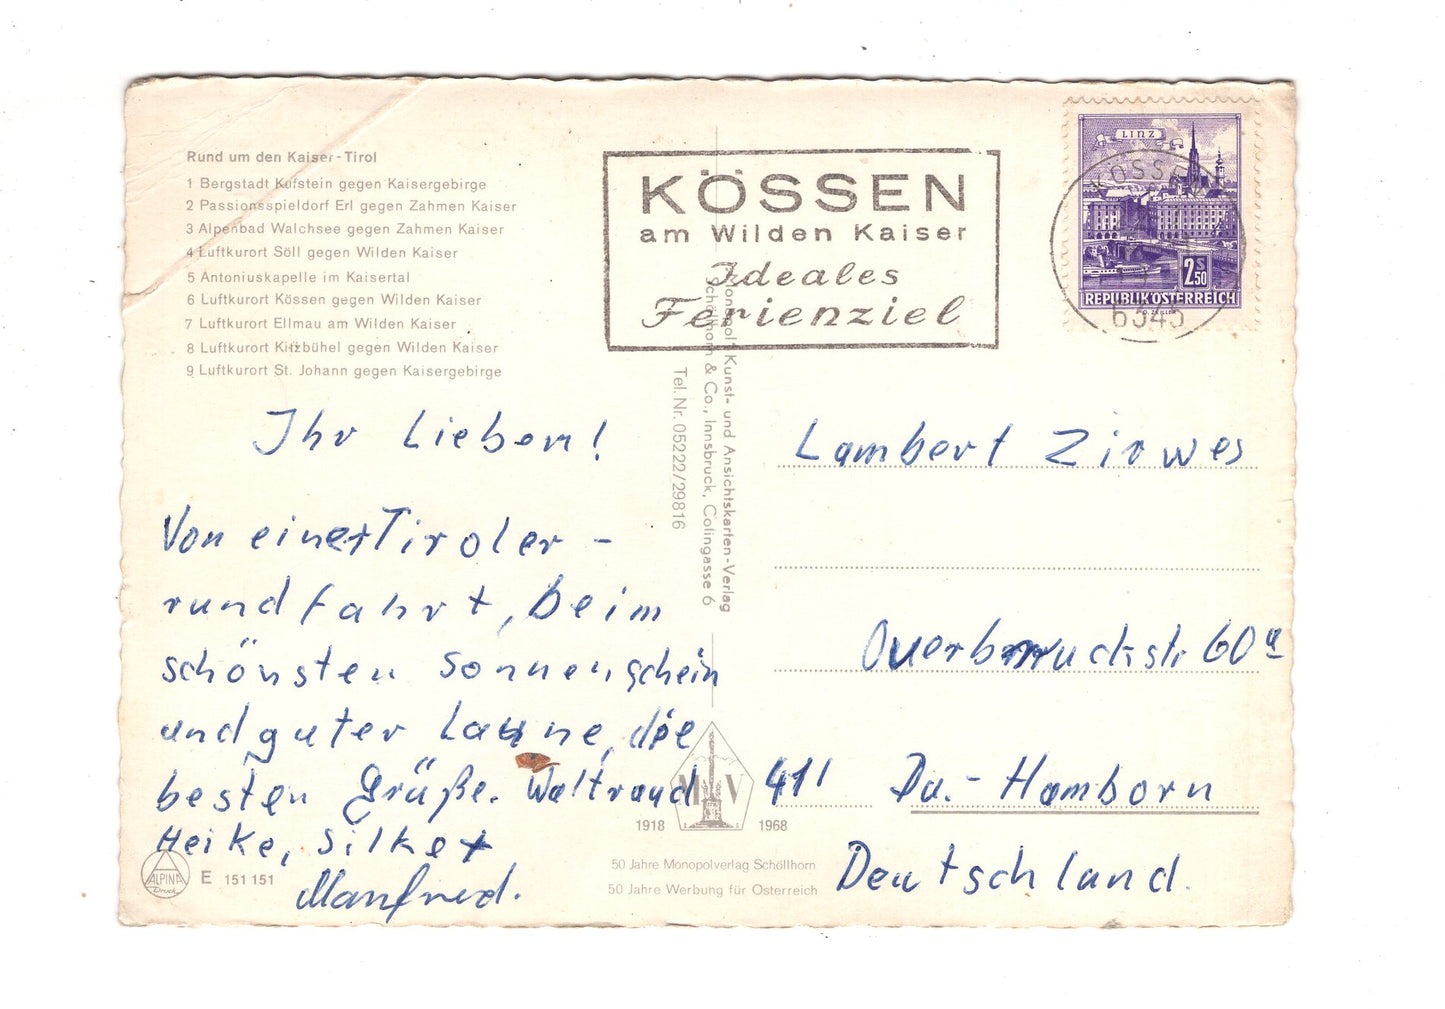 Rund um den Kaiser - Tirol
1 Bergstadt Kufstein gegen Kaisergebirge
2 Passionsspieldorf Erl gegen Zahmen Kaiser
3 Alpenbad Walchsee gegen Zahmen Kaiser
4 Luftkurort Söll gegen Wilden Kaiser
5 Antoniuskapelle im Kaisertal
6 Luftkurort Kössen gegen Wilden Kaiser
7 Luftkurort Ellmau am Wilden Kaiser
8 Luftkurort Kitzbühel gegen Wilden Kaiser
9 Luftkurort St. Johann gegen Kaisergebirge
KÖSSEN
am Wilden Kaiser
Ideales
Ferienziel
LINZ
2 S 50
REPUBLIK ÖSTERREICH
KÖSSEN
6345
„Monopol" Kunst- und Ansichtskarten-Verlag
Schöllhorn & Co., Innsbruck, Colingasse 6
Tel. Nr. 05222/29816
Ihr Lieben!
Von einer Tiroler-
rundfahrt, beim
schönsten Sonnenschein
und guter Laune, die
besten Grüße. Waltraud
Heike, Silke +
Manfred.
Lambert Zirwes
Overbruckstr 60a
411 Du.- Hamborn
Deutschland.
M V
1918 1968
50 Jahre Monopolverlag Schöllhorn
50 Jahre Werbung für Österreich
ALPINA
Druck
E 151 151